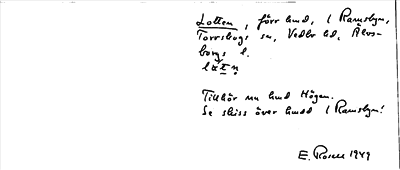 Lotten, förr hmd, i Ramsbyn,
Torrskogs sn, Vedbo hd, Älvs-
borgs l.
Tillhör nu hmd Högen.
Se skiss över hmd i Ramsbyn!
E. Rosell 1949